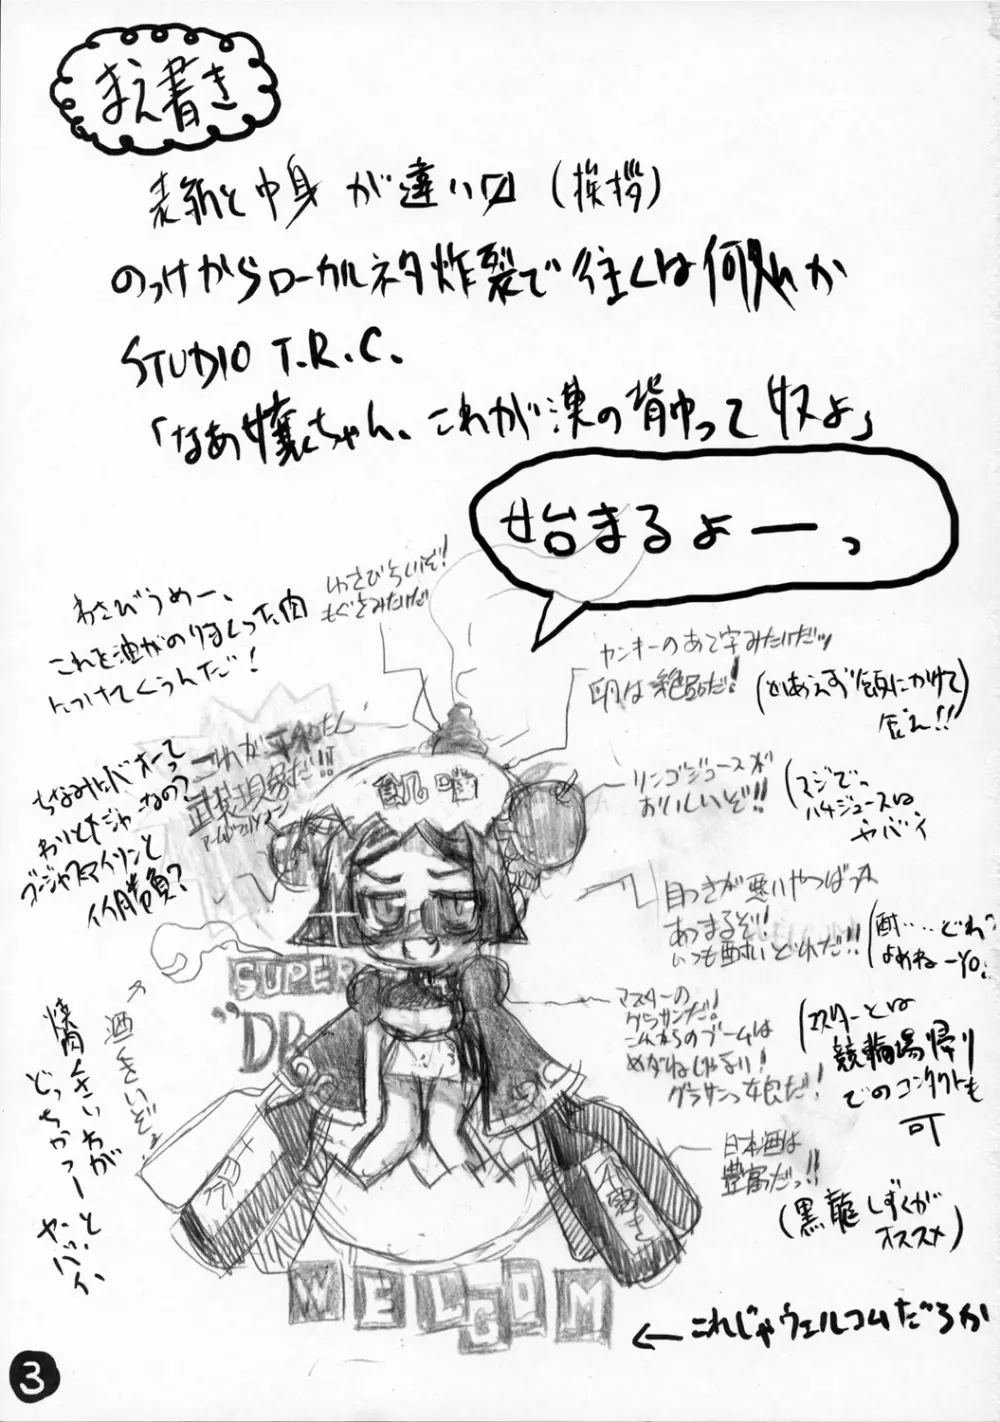 まえ書き
表紙と中身が違い〼(挨拶)
のっけからローカルネタ炸裂で往くは何処か
STUDIO T.R.C.
「なあ嬢ちゃん、これが漢の背中って奴よ」
始まるよーっ
わさびうめー、
これを油がのりまくった肉
につけてくうんだ!
わさびらいぞ!
もぐさみたいだ
ちなみにバオーって
わりとたジャなの?
ゴージャスマイリンと
イイ勝負?
これが
武装現象だ!!
アームドフェノメノン
ヤンキーのあて字みたいだッ
卵は絶品だ!
(とりあえず頭にかけて
飲め!!
リンゴジュースが
おいしいぞ!!
(マジで。
ハチジュースは
ヤバイ
目つきが悪いやつばっか
あつまるぞ!
いつも酔いどれだ!!
(酔……どれ?
よめねーYO.
マスターの
グラサンだ!
これからのブームは
めがねじゃない!
グラサンっ娘だ!
(マスターとは
競輪場帰り
でのコンタクトも
可
日本酒は
豊富だっ!!
(黒龍しずくが
オススメ)
酒くさいぞ!
焼肉くさいわが
どっちかっつーと。
ヤバイ
飢嘴
SUPER
"DR
WELCOM
←これじゃウェルコムだろか
3